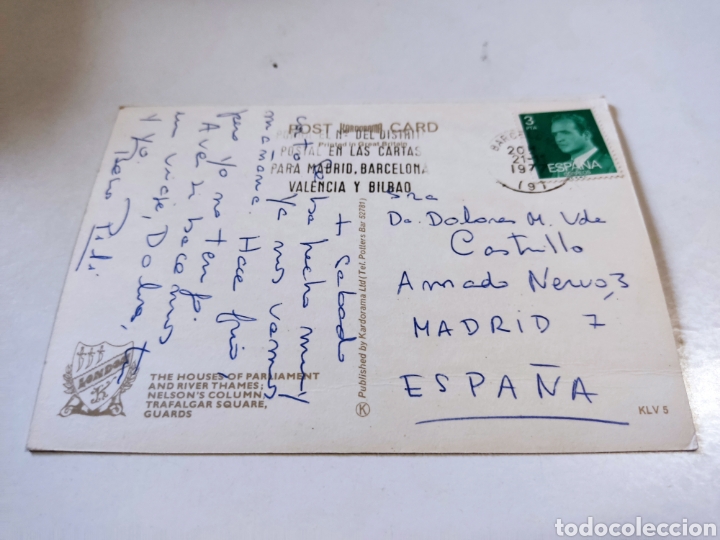 POST KARDORAMA CARD
Printed in Great Britain
PONGA EL Nº DEL DISTRITO
POSTAL EN LAS CARTAS
PARA MADRID, BARCELONA
VALENCIA Y BILBAO
3
PTA
ESPAÑA
20
21
197
(9)
+ Sabado
Se ha hecho muy
corto. Ya nos vamos
mañana. Hace frio
pero yo no tengo.
A ver si hacemos
un viaje, Dolores, tu
y yo
Sra
Da. Dolores M. Vda
Castrillo
Amado Nervo, 3
MADRID 7
ESPAÑA
Published by Kardorama Ltd (Tel. Potters Bar 52781)
K
LONDON
THE HOUSES OF PARLIAMENT
AND RIVER THAMES;
NELSON'S COLUMN,
TRAFALGAR SQUARE,
GUARDS
KLV 5
todocoleccion